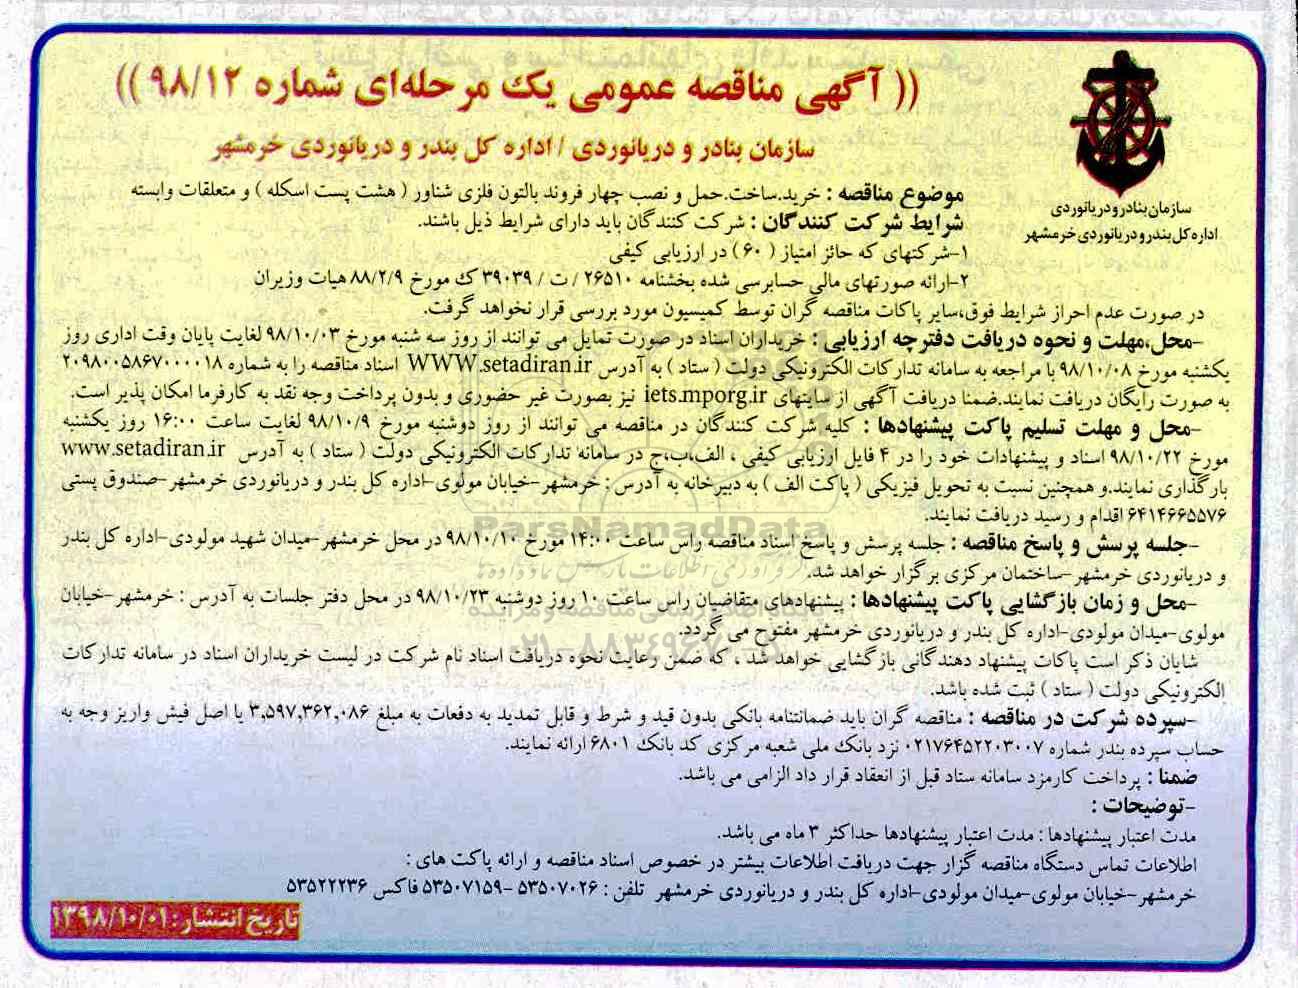 (( آگهی مناقصه عمومی یک مرحله‌ای شماره ۹۸/۱۲ ))
سازمان بنادر و دریانوردی / اداره کل بندر و دریانوردی خرمشهر
سازمان بنادر و دریانوردی
اداره کل بندر و دریانوردی خرمشهر
موضوع مناقصه : خرید.ساخت.حمل و نصب چهار فروند بالتون فلزی شناور ( هشت پست اسکله ) و متعلقات وابسته
شرایط شرکت کنندگان : شرکت کنندگان باید دارای شرایط ذیل باشند.
۱-شرکتهای که حائز امتیاز ( ۶۰ ) در ارزیابی کیفی
۲-ارائه صورتهای مالی حسابرسی شده بخشنامه ۲۶۵۱۰ / ت / ۳۹۰۳۹ ک مورخ ۸۸/۲/۹ هیات وزیران
در صورت عدم احراز شرایط فوق،سایر پاکات مناقصه گران توسط کمیسیون مورد بررسی قرار نخواهد گرفت.
-محل،مهلت و نحوه دریافت دفترچه ارزیابی : خریداران اسناد در صورت تمایل می توانند از روز سه شنبه مورخ ۹۸/۱۰/۰۳ لغایت پایان وقت اداری روز
یکشنبه مورخ ۹۸/۱۰/۰۸ با مراجعه به سامانه تدارکات الکترونیکی دولت ( ستاد ) به آدرس WWW.setadiran.ir اسناد مناقصه را به شماره ۲۰۹۸۰۰۵۸۶۷۰۰۰۰۱۸
به صورت رایگان دریافت نمایند.ضمنا دریافت آگهی از سایتهای iets.mporg.ir نیز بصورت غیر حضوری و بدون پرداخت وجه نقد به کارفرما امکان پذیر است.
-محل و مهلت تسلیم پاکت پیشنهادها : کلیه شرکت کنندگان در مناقصه می توانند از روز دوشنبه مورخ ۹۸/۱۰/۹ لغایت ساعت ۱۶:۰۰ روز یکشنبه
مورخ ۹۸/۱۰/۲۲ اسناد و پیشنهادات خود را در ۴ فایل ارزیابی کیفی ، الف،ب،ج در سامانه تدارکات الکترونیکی دولت ( ستاد ) به آدرس www.setadiran.ir
بارگذاری نمایند.و همچنین نسبت به تحویل فیزیکی ( پاکت الف ) به دبیرخانه به آدرس : خرمشهر-خیابان مولوی-اداره کل بندر و دریانوردی خرمشهر-صندوق پستی
۶۴۱۴۶۶۵۵۷۶ اقدام و رسید دریافت نمایند.
ParsNamadData
-جلسه پرسش و پاسخ مناقصه : جلسه پرسش و پاسخ اسناد مناقصه راس ساعت ۱۴:۰۰ مورخ ۹۸/۱۰/۱۰ در محل خرمشهر-میدان شهید مولودی-اداره کل بندر
و دریانوردی خرمشهر-ساختمان مرکزی برگزار خواهد شد.
-محل و زمان بازگشایی پاکت پیشنهادها : پیشنهادهای متقاضیان راس ساعت ۱۰ روز دوشنبه ۹۸/۱۰/۲۳ در محل دفتر جلسات به آدرس : خرمشهر-خیابان
مولوی-میدان مولودی-اداره کل بندر و دریانوردی خرمشهر مفتوح می گردد.
۰۲۱-۸۸۳۴۹۶۷۰-۵
شایان ذکر است پاکات پیشنهاد دهندگانی بازگشایی خواهد شد ، که ضمن رعایت نحوه دریافت اسناد نام شرکت در لیست خریداران اسناد در سامانه تدارکات
الکترونیکی دولت ( ستاد ) ثبت شده باشد.
-سپرده شرکت در مناقصه : مناقصه گران باید ضمانتنامه بانکی بدون قید و شرط و قابل تمدید به دفعات به مبلغ ۳,۵۹۷,۳۶۲,۰۸۶ یا اصل فیش واریز وجه به
حساب سپرده بندر شماره ۰۲۱۷۶۴۵۲۲۰۳۰۰۷ نزد بانک ملی شعبه مرکزی کد بانک ۶۸۰۱ ارائه نمایند.
ضمنا : پرداخت کارمزد سامانه ستاد قبل از انعقاد قرار داد الزامی می باشد.
-توضیحات :
مدت اعتبار پیشنهادها : مدت اعتبار پیشنهادها حداکثر ۳ ماه می باشد.
اطلاعات تماس دستگاه مناقصه گزار جهت دریافت اطلاعات بیشتر در خصوص اسناد مناقصه و ارائه پاکت های :
خرمشهر-خیابان مولوی-میدان مولودی-اداره کل بندر و دریانوردی خرمشهر تلفن : ۵۳۵۰۷۰۲۶ -۵۳۵۰۷۱۵۹ فاکس ۵۳۵۲۲۲۳۶
تاریخ انتشار : ۱۳۹۸/۱۰/۰۱